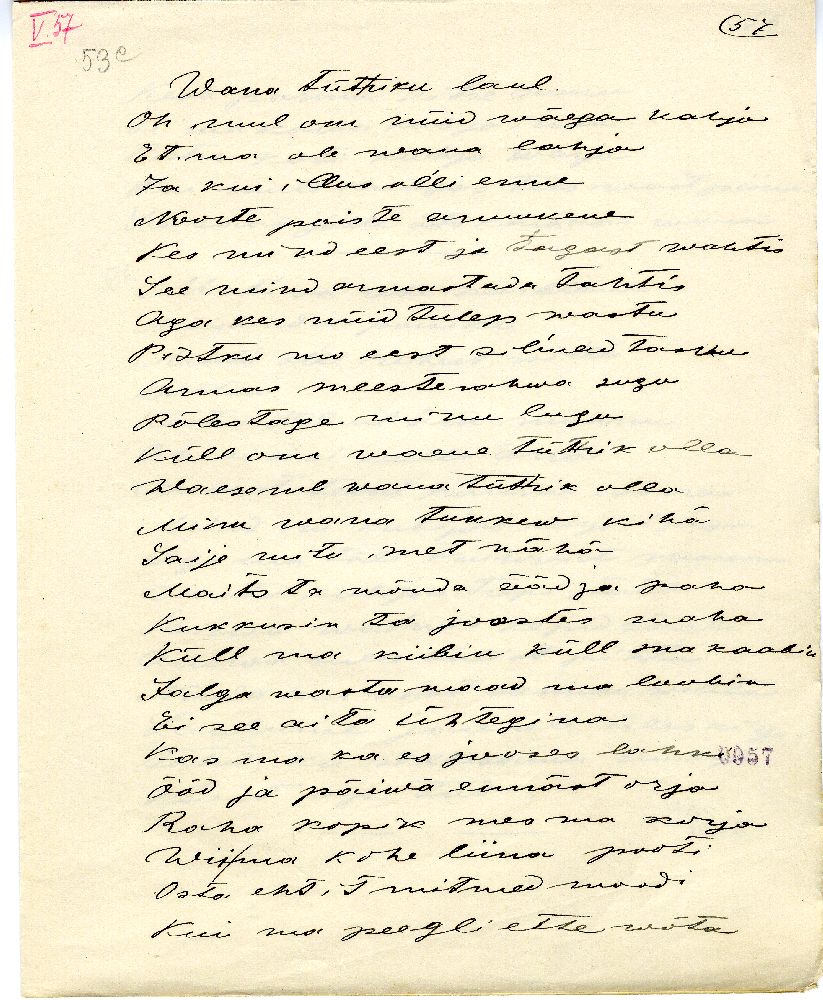 V. 57
57
53e
Wana tüttriku laul.
Oh mul om nüid wäega kahju
Et ma ole wana lahja
Ja kui illus olli enne
Noorte poiste armukene
Kes mind eest ja tagast wahtis
See mind armastada tahtis
Aga kes nüid tulep wastu
Pistku mo eest silmad
Armas meesterahwa sugu
Põlestage minu lugu
Küll om waene tüttrik olla
Waesemb wana tüttrik olla
Minu wana tunkew kihä
Saije mitu imet nähä
Maits ta mõnda ääd ja paha
Kukkusin ta joostes maha
Küll ma kiibin küll ma kaabin
Jalga wasta maad ma
Ei see aita ühtegina
Kas ma ka es jooses lahki
0957
Ööd ja päiwä ennäst orja
Raha kopik mes ma korja
Wiima kohe liina pooti
Osta ehtit mitmed moodi
Kui ma peegli ette wõta